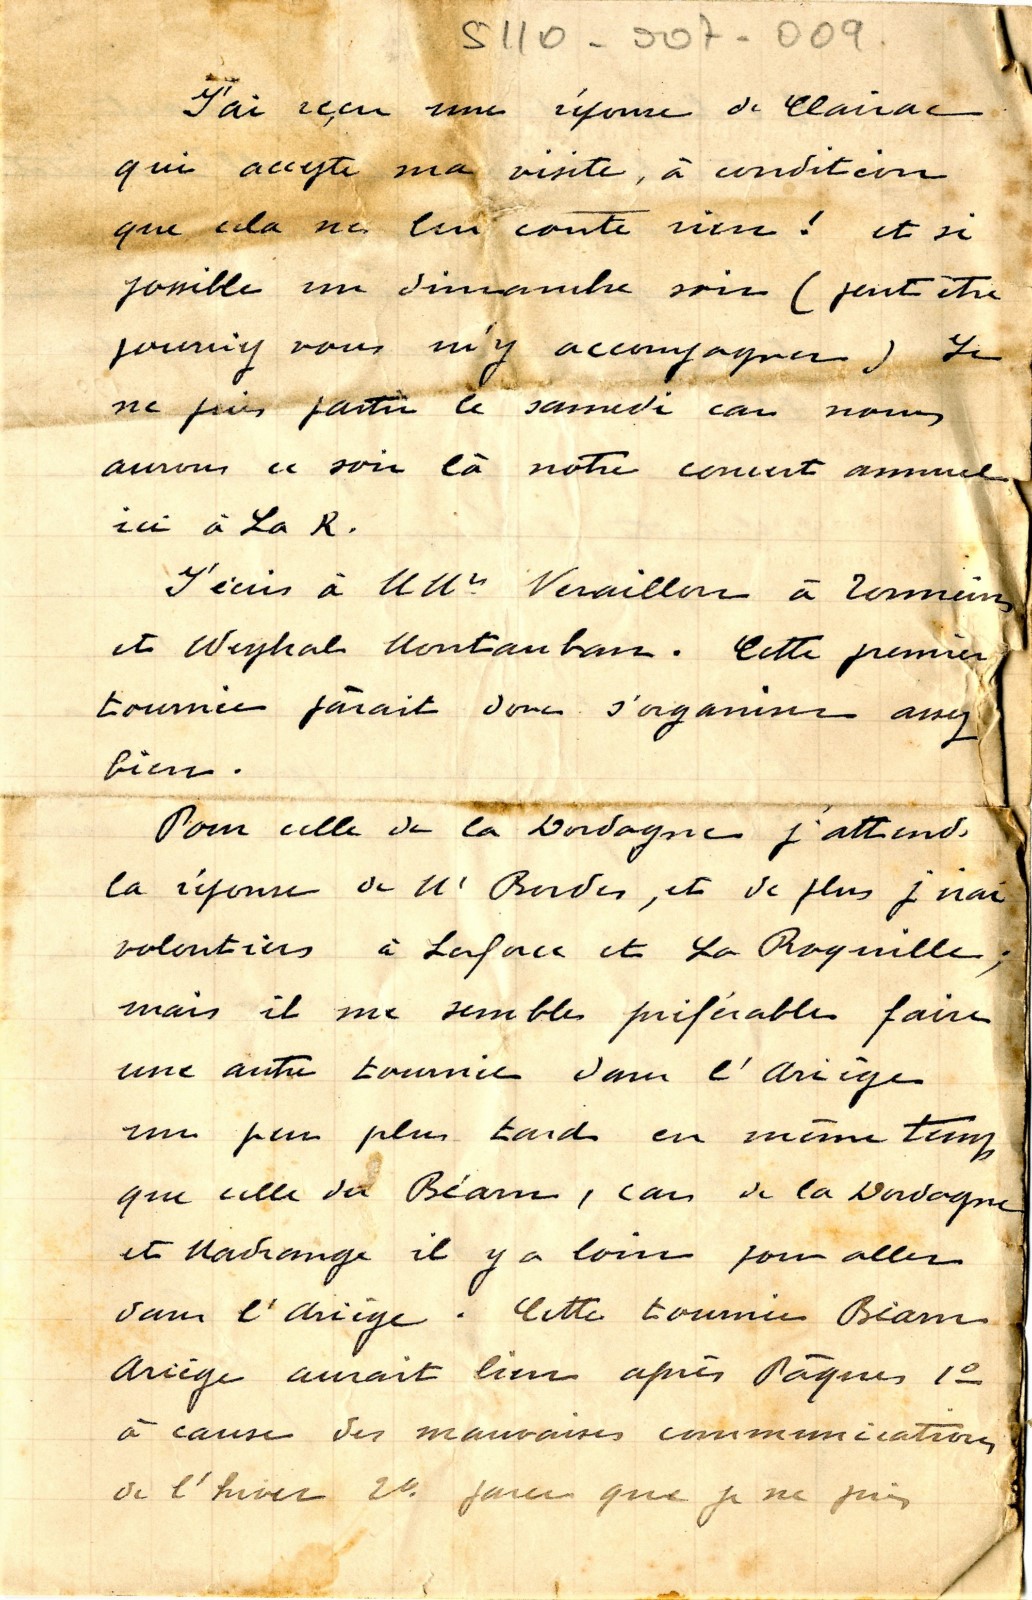 S110-007-009.
J'ai reçu une réponse de Clairac
qui accepte ma visite, à condition
que cela ne leur coute rien ! et si
possible un dimanche soir (peut être
pourriez vous m'y accompagner) Je
ne puis partir le samedi car nous
aurons ce soir là notre concert annuel
ici à La R.
J'écris à MMrs Veraillon à Tonneins
et Weyhal Montauban. Cette première
tournée pârait donc s'organiser assez
bien.
Pour celle de la Dordogne j'attends
la réponse de Mr Bordes, et de plus j'irai
volontiers à Laforce et La Roquille,
mais il me semble préférable faire
une autre tournée dans l'Ariège
un peu plus tard en même temps
que celle du Béarn, car de la Dordogne
et Madrange il y a loin pour aller
dans l'Ariège. Cette tournée Béarn
Ariège aurait lieu après Pâques 1o
à cause des mauvaises communications
de l'hiver 2o. parce que je ne puis